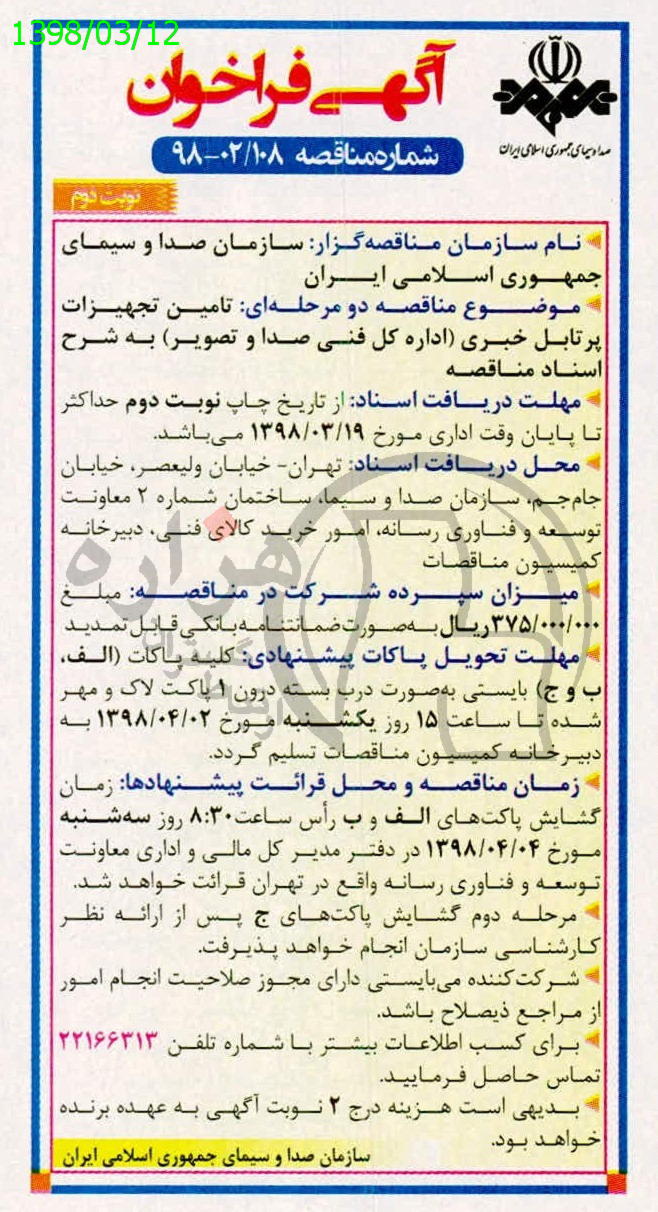 1398/03/12
صدا و سیمای جمهوری اسلامی ایران
آگهی فراخوان
شماره مناقصه ۹۸-۰۲/۱۰۸
نوبت دوم
نـام سـازمـان منـاقصه‌گـزار: سـازمـان صـدا و سیمـای
جمهـوری اسـلامـی ایـران
موضـوع مناقصـه دو مرحلـه‌ای: تامیـن تجهیـزات
پرتابـل خبـری (اداره کل فنـی صـدا و تصویـر) بـه شـرح
اسنـاد منـاقصـه
مهلـت دریـافـت اسنـاد: از تاریـخ چـاپ نوبـت دوم حداکثر
تـا پـایـان وقت اداری مـورخ ۱۳۹۸/۰۳/۱۹ مـی‌بـاشـد.
محـل دریـافـت اسنـاد: تهـران- خیابـان ولیعصـر، خیابان
جام‌جـم، سـازمان صـدا و سـیما، سـاختمان شـماره ۲ معاونـت
توسـعه و فنـاوری رسـانه، امـور خریـد کالای فنـی، دبیرخانـه
کمیسیون منـاقصـات
میـزان سپـرده شـرکت در منـاقصـه: مبلـغ
۳۷۵/۰۰۰/۰۰۰ریـال بـه‌صـورت‌ضمـانتنـامه‌بانکـی‌قابـل‌تمدیـد
مهلـت تحویـل پـاکات پیشـنهادی: کلیـه پـاکات (الـف،
ب و ج) بایستی به‌صورت درب بسته درون ۱ پاکـت لاک و مهر
شـده تـا سـاعت ۱۵ روز یکشـنبه مـورخ ۱۳۹۸/۰۴/۰۲ بـه
دبیـرخـانـه کمیسیـون منـاقصـات تسلیم گـردد.
زمـان مناقصـه و محـل قرائـت پیشـنهادها: زمـان
گشـایش پاکت‌هـای الـف و ب رأس ساعت۸:۳۰ روز سه‌شنبه
مـورخ ۱۳۹۸/۰۴/۰۴ در دفتـر مدیـر کل مالـی و اداری معاونـت
توسعـه و فنـاوری رسـانـه واقـع در تهـران قـرائت خـواهـد شـد.
مرحلـه دوم گشـایش پاکت‌هـای ج پـس از ارائـه نظـر
کـارشنـاسـی سـازمـان انجـام خـواهـد پـذیـرفـت.
شـرکت‌کننده می‌بایسـتی دارای مجـوز صلاحیـت انجـام امور
از مـراجـع ذیصـلاح بـاشـد.
بـرای کسـب اطلاعـات بیشـتر بـا شـماره تلفـن ۲۲۱۶۶۳۱۳
تمـاس حـاصـل فـرمـاییـد.
بـدیهی اسـت هـزینه درج ۲ نـوبت آگهـی بـه عهـده برنـده
خـواهـد بـود.
سازمان صدا و سیمای جمهوری اسلامی ایران
هزاره